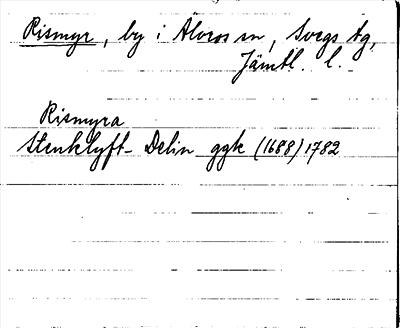 Rismyr, by i Älvros sn, Svegs tg,
Jämtl. l.
Rismyra
Stenklyft- Delin ggk (1688) 1782